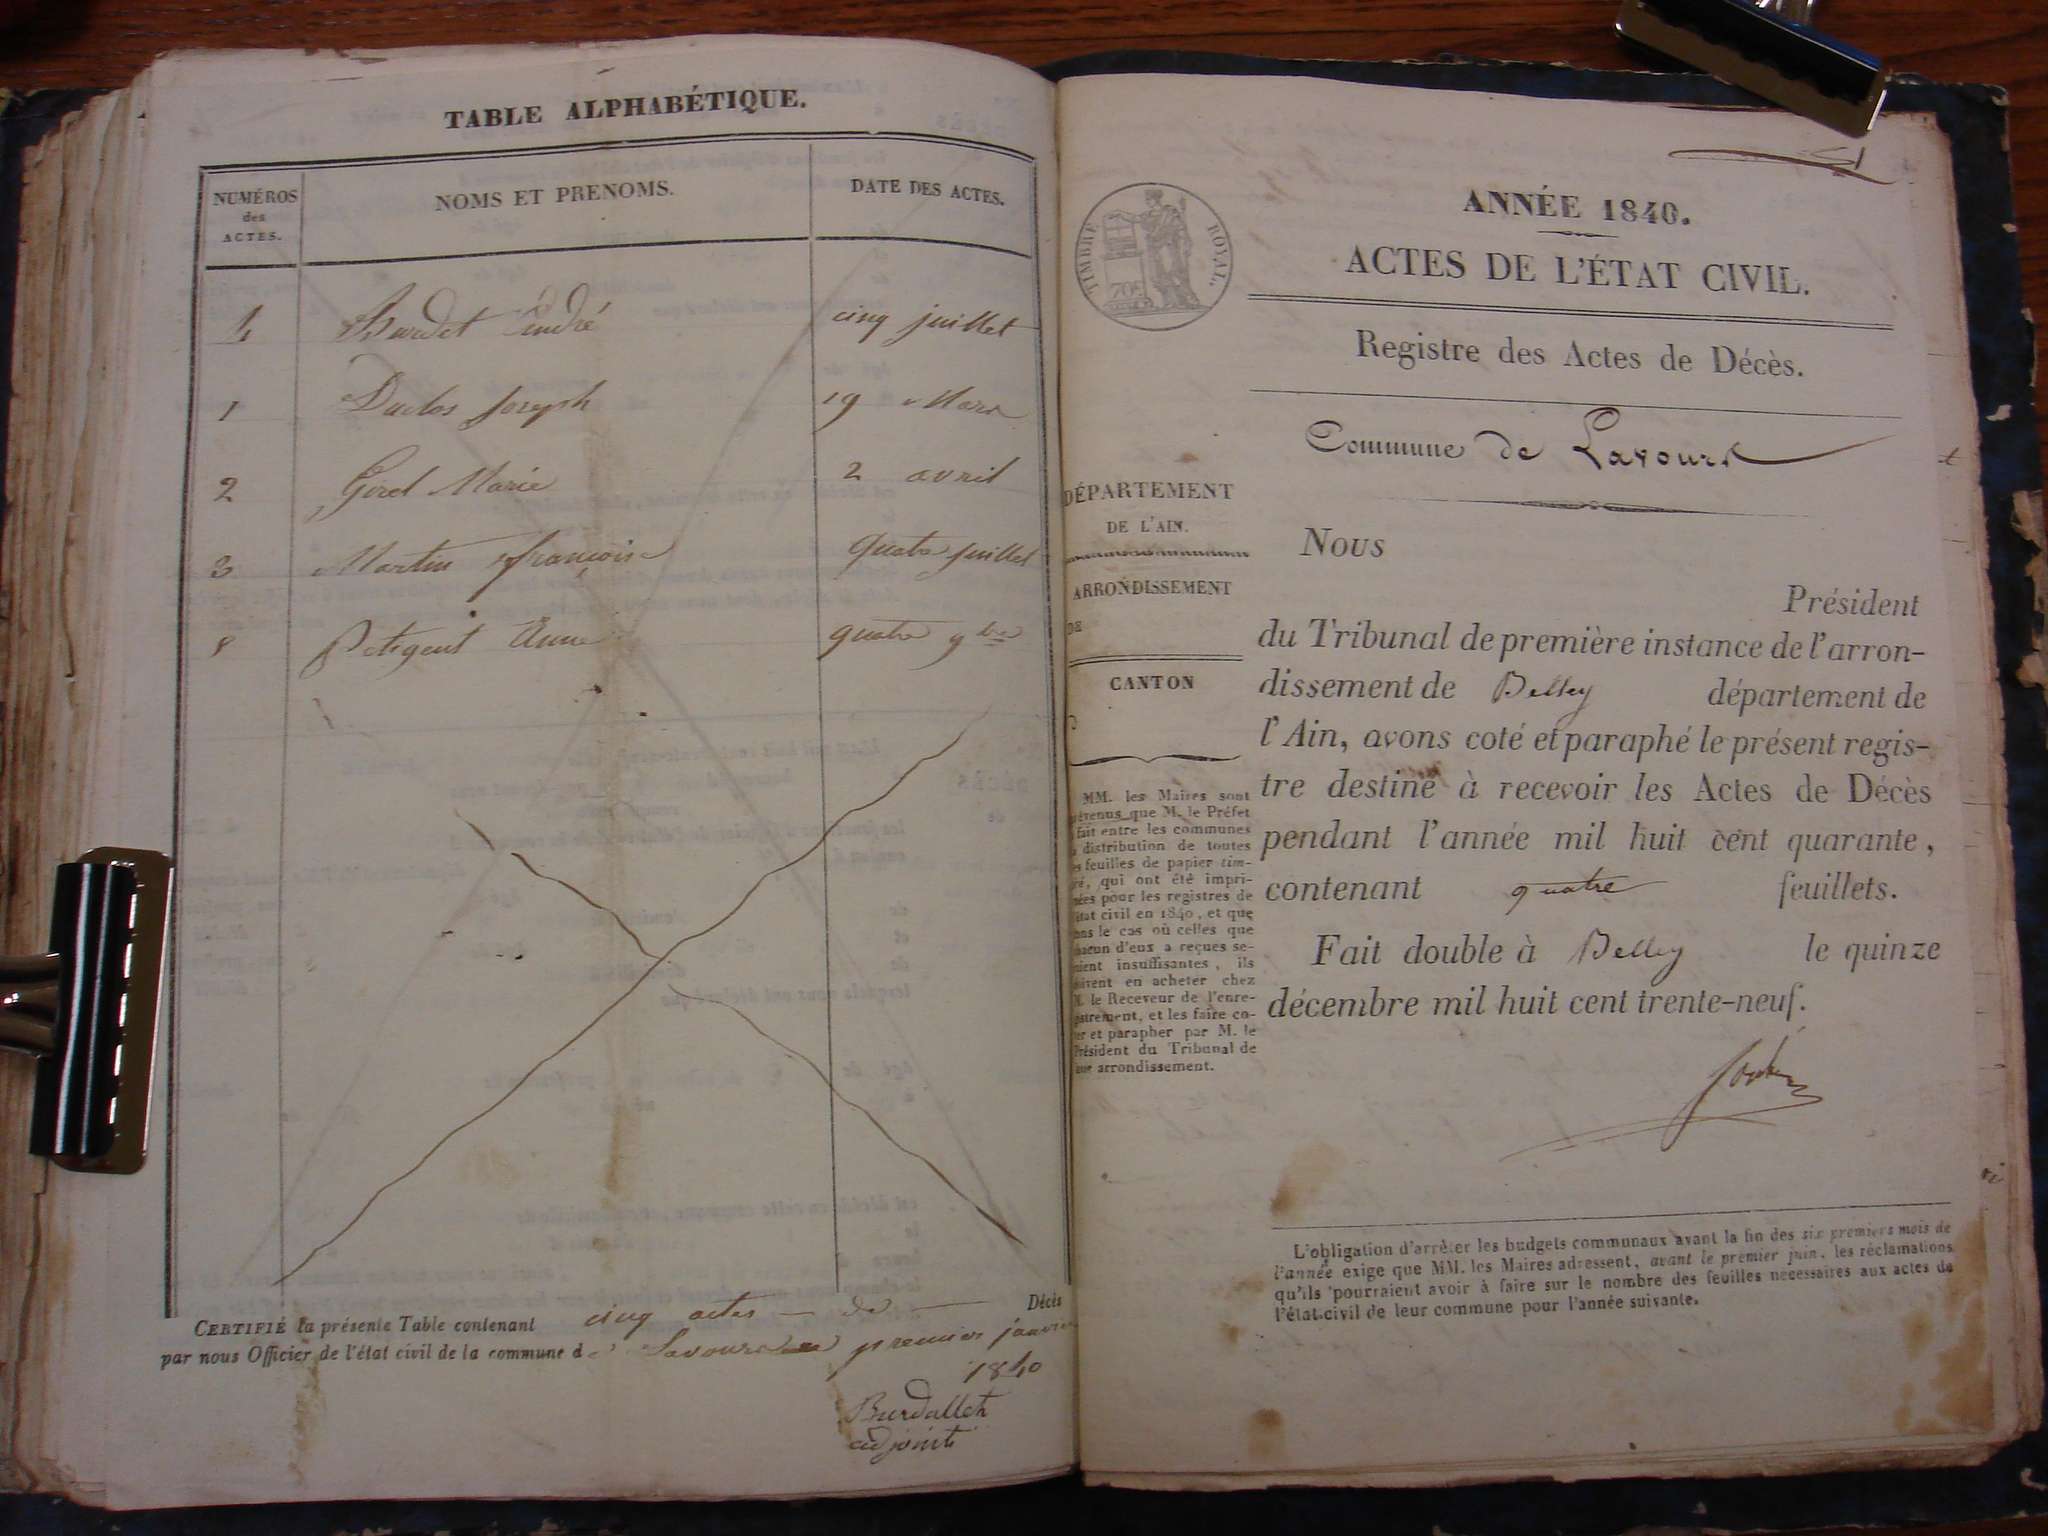 TABLE ALPHABÉTIQUE.
NUMÉROS
des
ACTES.
NOMS ET PRENOMS.
DATE DES ACTES.
4 Burdet André cinq juillet
1 Duclos Joseph 19 Mars
2 Girel Marie 2 avril
3 Martin françoise quatre juillet
5 Petigent Anne quatre 9bre
CERTIFIÉ la présente Table contenant cinq actes — de — Décès
par nous Officier de l'état civil de la commune de Lavours premier janvier
1840
Burdallet
adjoint
51
TIMBRE ROYAL.
70c
ANNÉE 1840.
ACTES DE L'ÉTAT CIVIL.
Registre des Actes de Décès.
Commune de Lavours
DÉPARTEMENT
DE L'AIN.
ARRONDISSEMENT
DE
CANTON
MM. les Maires sont
prévenus que M. le Préfet
a fait entre les communes
la distribution de toutes
les feuilles de papier tim-
bré, qui ont été impri-
mées pour les registres de
l'état civil en 1840, et que
dans le cas où celles que
chacun d'eux a reçues se-
raient insuffisantes, ils
doivent en acheter chez
M. le Receveur de l'enre-
gistrement, et les faire co-
ter et parapher par M. le
Président du Tribunal de
leur arrondissement.
Nous
Président
du Tribunal de première instance de l'arron-
dissement de Belley département de
l'Ain, avons coté et paraphé le présent regis-
tre destiné à recevoir les Actes de Décès
pendant l'année mil huit cent quarante,
contenant quatre feuillets.
Fait double à Belley le quinze
décembre mil huit cent trente-neuf.
L'obligation d'arrêter les budgets communaux avant la fin des six premiers mois de
l'année exige que MM. les Maires adressent, avant le premier juin, les réclamations
qu'ils pourraient avoir à faire sur le nombre des feuilles nécessaires aux actes de
l'état-civil de leur commune pour l'année suivante.